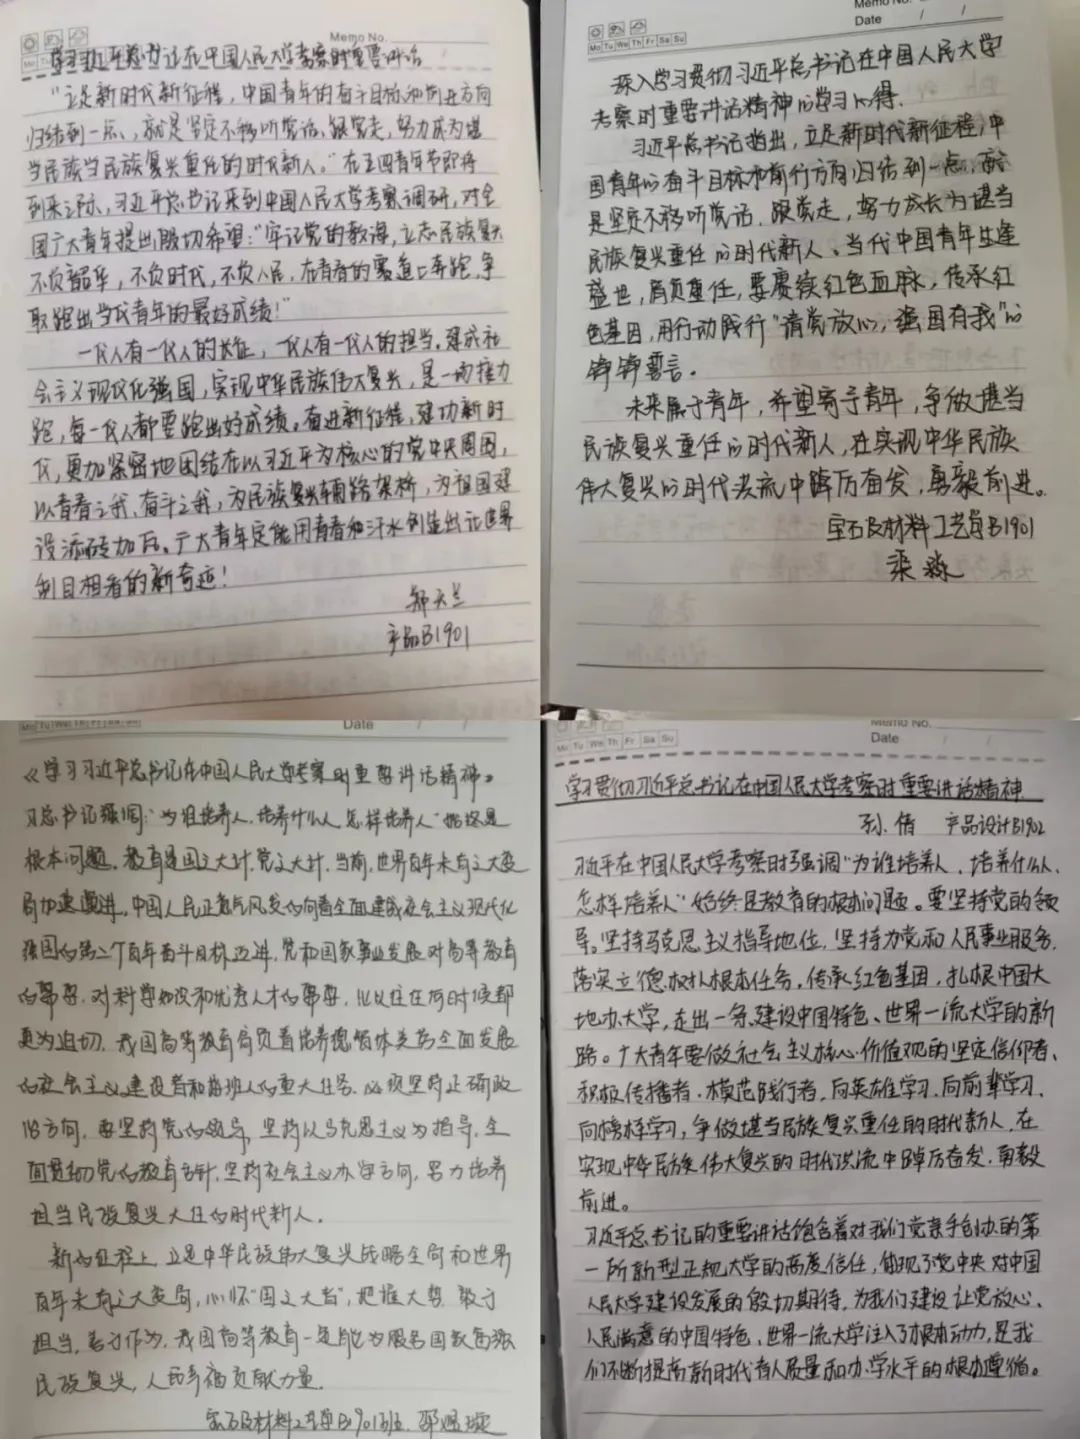 Memo No.
学习习近平总书记在中国人民大学考察时重要讲话
"立足新时代新征程，中国青年的奋斗目标和前进方向
归结到一点，就是坚定不移听党话、跟党走，努力成为堪
当民族当民族复兴重任的时代新人。"在五四青年节即将
到来之际，习近平总书记来到中国人民大学考察调研，对全
国广大青年提出殷切希望："牢记党的教诲，立志民族复兴
不负韶华，不负时代，不负人民，在青春的赛道上奔跑，争
取跑出当代青年的最好成绩！"
一代人有一代人的长征，一代人有一代人的担当。建成社
会主义现代化强国，实现中华民族伟大复兴，是一场接力
跑，每一代人都要跑出好成绩。奋进新征程，建功新时
代，更加紧密地团结在以习近平为核心的党中央周围，
以青春之我、奋斗之我，为民族复兴铺路架桥，为祖国建
设添砖加瓦。广大青年定能用青春和汗水创造出让世界
刮目相看的新奇迹！
郑天兰
产品B1901
Memo No.
Date / /
Mo Tu We Th Fr Sa Su
深入学习贯彻习近平总书记在中国人民大学
考察时重要讲话精神的学习心得.
习近平总书记指出，立足新时代新征程，中
国青年的奋斗目标和前行方向归结到一点，就
是坚定不移听党话、跟党走，努力成长为堪当
民族复兴重任的时代新人。当代中国青年生逢
盛世，肩负重任，要赓续红色血脉，传承红
色基因，用行动践行"请党放心，强国有我"的
铮铮誓言。
未来属于青年，希望寄予青年，争做堪当
民族复兴重任的时代新人，在实现中华民族
伟大复兴的时代洪流中踔厉奋发，勇毅前进。
宝石及材料工艺学B1901
梁淼
Date / /
《学习习近平总书记在中国人民大学考察时重要讲话精神》
习总书记强调："为谁培养人、培养什么人、怎样培养人"始终是
根本问题。教育是国之大计，党之大计。当前，世界百年未有之大变
局加速演进，中国人民正意气风发的向着全面建成社会主义现代化
强国的第二个百年奋斗目标迈进，党和国家事业发展对高等教育
的需要，对科学知识和优秀人才的需要，比以往任何时候都
更为迫切。我国高等教育肩负着培养德智体美劳全面发展
的社会主义建设者和接班人的重大任务，必须坚持正确政
治方向，要坚持党的领导，坚持以马克思主义为指导，全
面贯彻党的教育方针，坚持社会主义办学方向，努力培养
担当民族复兴大任的时代新人。
新的征程上，立足中华民族伟大复兴战略全局和世界
百年未有之大变局，心怀"国之大者"，把握大势，敢于
担当，善于作为，我国高等教育一定能为服务国家富强
民族复兴，人民幸福贡献力量.
宝石及材料工艺学B1901班
Memo No.
Date / /
Mo Tu We Th Fr Sa Su
学习贯彻习近平总书记在中国人民大学考察时重要讲话精神
孙倩 产品设计B1902
习近平在中国人民大学考察时强调"为谁培养人、培养什么人、
怎样培养人"始终是教育的根本问题。要坚持党的领
导。坚持马克思主义指导地位，坚持为党和人民事业服务，
落实立德树人根本任务，传承红色基因，扎根中国大
地办大学，走出一条建设中国特色、世界一流大学的新
路。广大青年要做社会主义核心价值观的坚定信仰者、
积极传播者、模范践行者，向英雄学习、向前辈学习、
向榜样学习，争做堪当民族复兴重任的时代新人，在
实现中华民族伟大复兴的时代洪流中踔厉奋发，勇毅
前进。
习近平总书记的重要讲话饱含着对我们党亲手创办的第
一所新型正规大学的高度信任，体现了党中央对中国
人民大学建设发展的殷切期待，为我们建设让党放心、
人民满意的中国特色、世界一流大学注入了根本动力，是我
们不断提高新时代育人质量和办学水平的根本遵循。